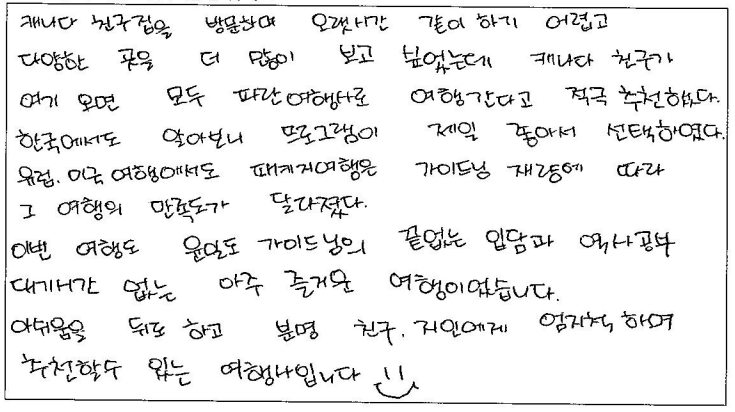 캐나다 친구집을 방문하며 오랫시간 같이 하기 어렵고
다양한 곳을 더 많이 보고 싶었는데 캐나다 친구가
여기 오면 모두 파란여행사로 여행간다고 적극 추천했다.
한국에서도 알아보니 프로그램이 제일 좋아서 선택하였다.
유럽, 미국 여행에서도 패케지여행은 가이드님 재량에 따라
그 여행의 만족도가 달라졌다.
이번 여행도 윤일도 가이드님의 끝없는 입담과 역사공부
대기시간 없는 아주 즐거운 여행이었습니다.
아쉬움을 뒤로 하고 분명 친구, 지인에게 엄지척 하며
추천할수 있는 여행사입니다